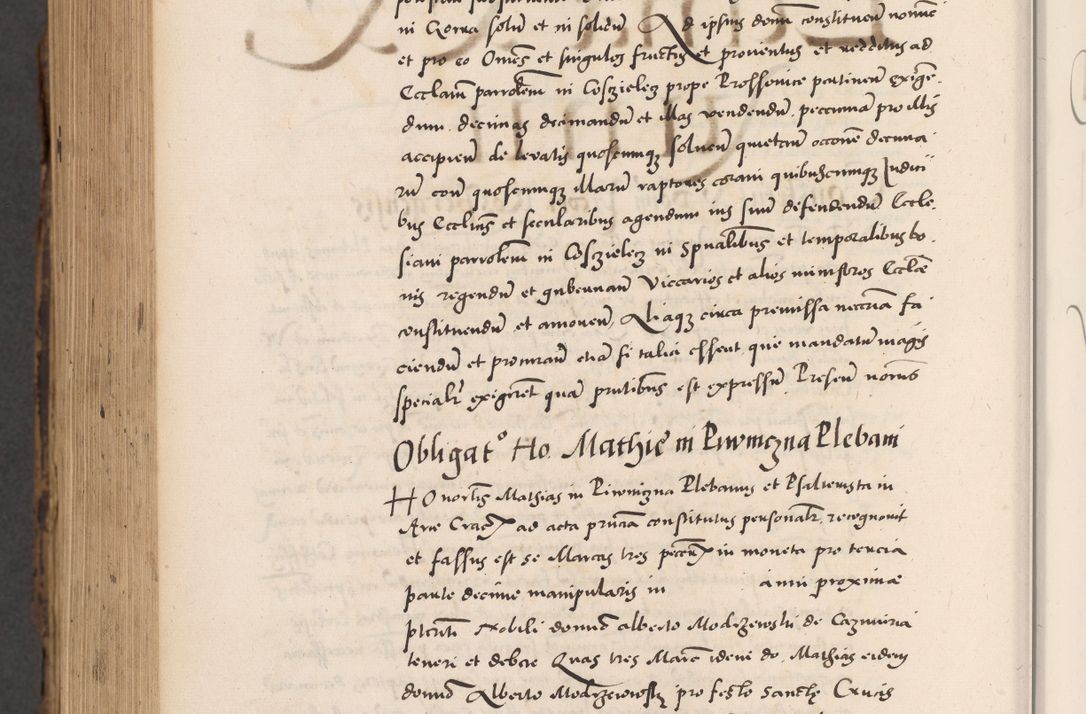 in Croma solum et in solidum Ad ipsius domini constituentis nomine
et pro eo Omnes et singulos fructus et proventus et redditus ad
Ecclam parrochialem in Coszielecz prope Prossovice pertinen exigen
dum, decimas decimandum et illas vendendum, peccuniam pro illis
accipiendum de levatis quoscumqz solven quietan occone decima
rum con quoscumqz illarum raptores coram quibuscumqz Judici
bus Ecclins et secularibus agendum ius suum defendendum Eccle
siam parrochialem in Coszielecz in spualibus et temporalibus bo
nis regendum et gubernan Viccarios et alios ministros Ecclie
constituendum et amoven, Aliaqz circa premissa necessaria fa
ciendum et procuran etiam si talia essent que mandatum magis
specialr exigerent quam pntibus est expressum Presen notus
Obligato Ho. Mathie in Piwniczna Plebani
Honorlis Mathias in Piwniczna Plebanus et Psalterista in
Arce Cracoviensi ad acta pncia constitutus personalr, recognovit
et fassus est se Marcas tres peccunie in moneta pro tercia
parte decime manipularis in anni proxime
ptriti Nobili domino Alberto Modrzewski de Cazmiria
teneri et debere Quas tres Marcas idem do. Mathias eidem
domino Alberto Modrzewowsky pro festo Sancte Crucis